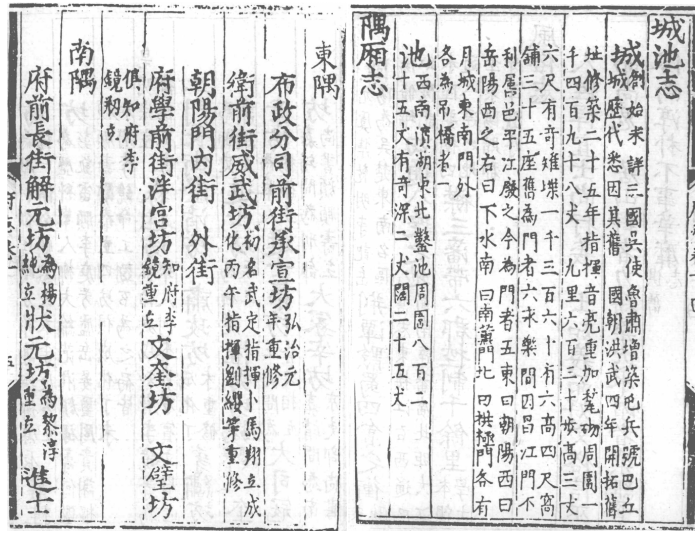 城池志
城創始未詳三國吳使魯肅增築屯兵號巴丘
城歷代悉因其舊 國朝洪武四年開拓舊
址修築二十五年指揮音亮重加甃砌周圍一
千四百九十八丈 九里六百三十步高三丈
六尺有奇雉堞一千三百六十有六高四尺窩
舖三十五座舊爲門者六永樂間因昌江門不
利屬邑平江廢之今爲門者五東曰朝陽西曰
岳陽西之右曰下水南曰南薰門北曰拱極門各有
月城東南門外
各爲吊橋者一
池西南濱湖東北鑿池周圍八百二
十五丈有奇深二丈闊二十五丈
隅廂志
東隅
布政分司前街承宣坊弘治元年重修
衛前街威武坊初名武定指揮卜馬翔立成化丙午指揮劉纓等重修
朝陽門内街 外街
府學前街泮宮坊知府李鏡重立 文奎坊 文璧坊
俱知府李鏡剏立
南隅
府前長街解元坊爲楊純立狀元坊爲黎淳重立進士